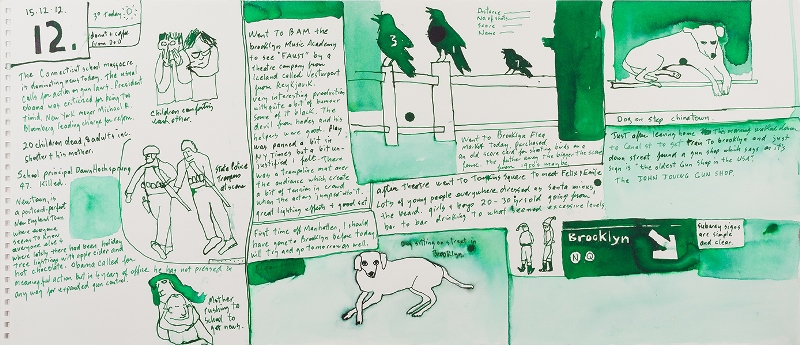 15.12.12.
12.
3° Today
donut & cafe
from 200
The Connecticut school massacre
is dominating news today. The usual
calls for action on gun laws. President
Obama was criticized for being too
timid, New York mayor Michael R.
Bloomberg leading charge for reform.
20 children dead, 8 adults inc.
shooter & his mother.
School principal Dawn Hochsprung
47. killed.
Newtown, is
a postcard-perfect
New England town
where everyone
seems to know
everyone else &
where lately there had been holiday
tree lightings with apple cider and
hot chocolate. Obama called for
meaningful action but in 4 years of office he has not pressed in
any way for expanded gun control.
Children comforting
each other.
State Police
troopers
at scene
Mother
rushing to
school to
get news.
Went to BAM the
brooklyn Music Academy
to see "FAUST" by a
theatre company from
Iceland called Vesturport
from Reykjavik.
very interesting production
with quite a bit of humour
some of it black. The
devil from hades and his
helpers were good. Play
was panned a bit in
NY Times but a bit un-
justified I felt. There
was a trampoline mat over
the audience which created
a bit of tension in crowd
when the actors jumped into it.
great lighting effects & good set
First time off Manhattan, I should
have gone to Brooklyn before today
will try and go tomorrow as well.
3
Distance
No of shots
Score
Name
Went to Brooklyn Flea
market today purchased
an old score card for shooting birds on a
fence. The father away the bigger the score
1920's maybe
After theatre went to Tompkins Square to meet Felix & Jamie
Lots of people everywhere dressed as santa minus
the beard. girls & boys 20-30 yrs old going from
bar to bar drinking to what seemed excessive levels
Dog sitting on street in
Brooklyn
Dog on step chinatown
Just after leaving home this morning walked down
to Canal st to get train to Brooklyn and just
down street found a gun shop which says on it's
sign is the oldest Gun Shop in the USA?
The JOHN JOVINO GUN SHOP.
Brooklyn
N Q
Subway signs
are simple
and clear.